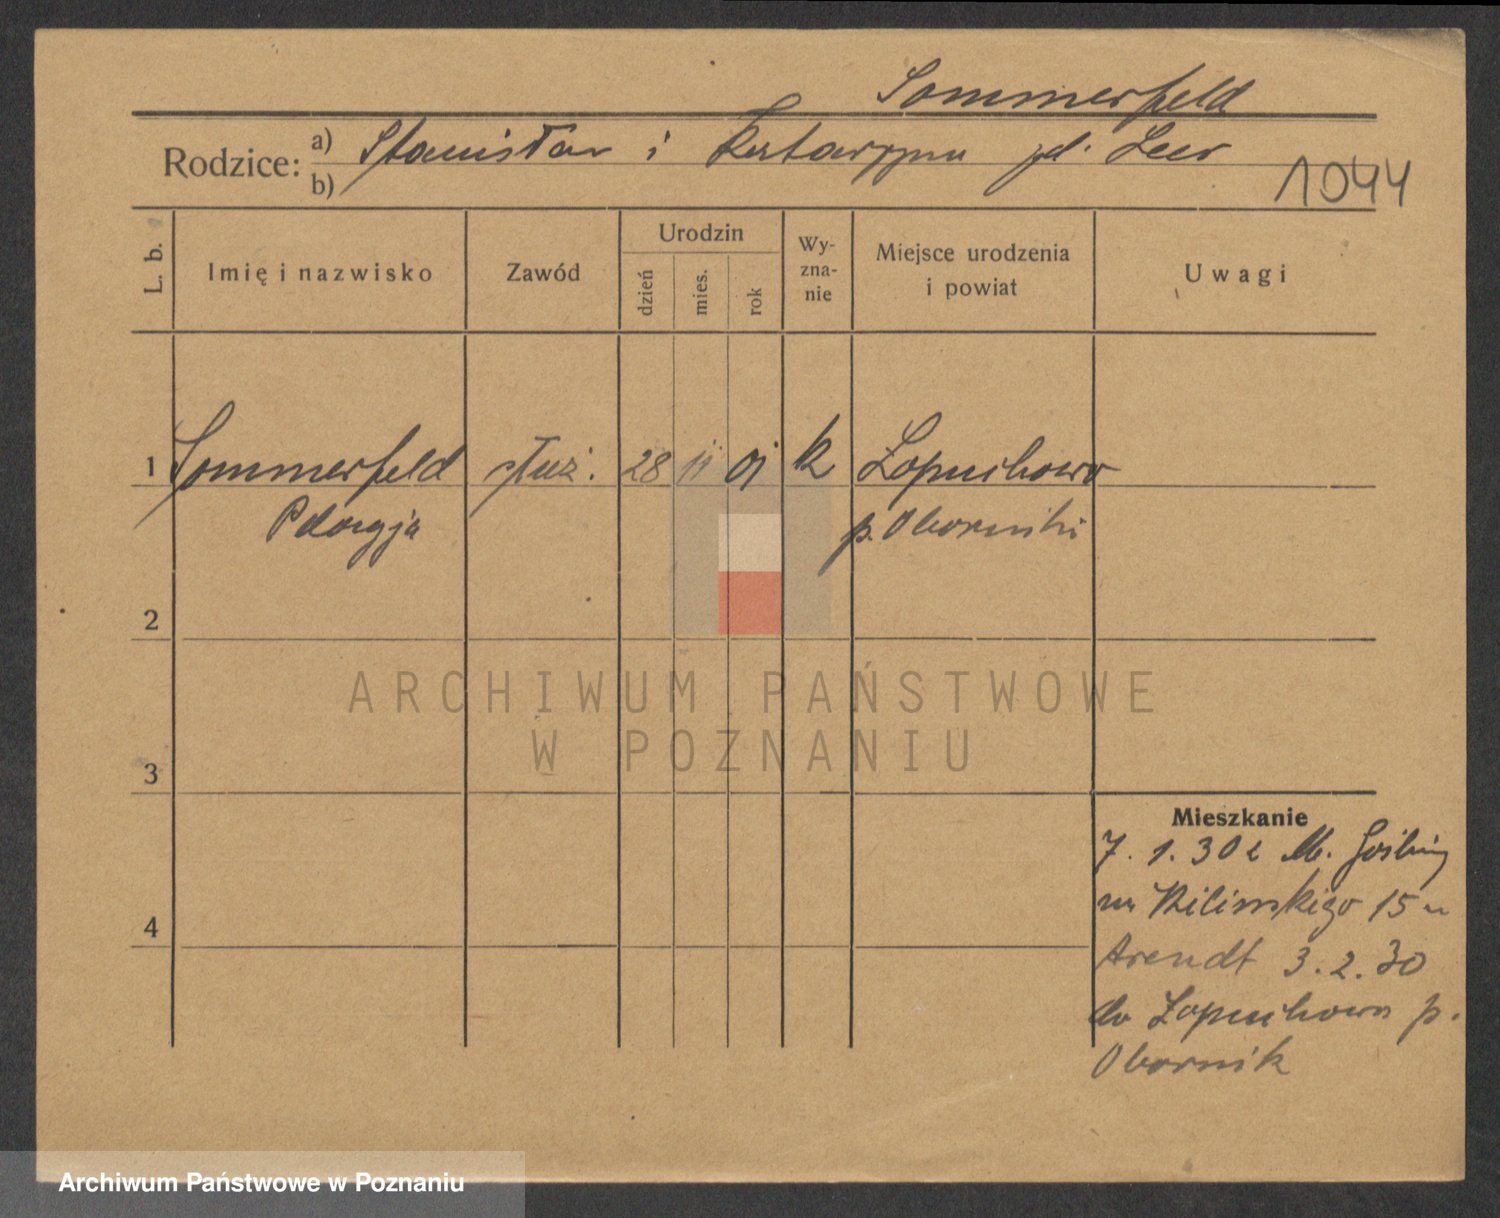 Sommerfeld
Rodzice: a) Stanisław i Katarzyna
b)
1044
L. b. Imię i nazwisko Zawód Urodzin dzień mies. rok Wyzna-nie Miejsce urodzenia i powiat Uwagi
1 Sommerfeld służ. 28 11 01 k Łopuchowo
p. Oborniki
2
ARCHIWUM PAŃSTWOWE
W POZNANIU
3
Mieszkanie
7. 1. 30 z M. Gośliny
na Kilińskiego 15 u
4
Arendt 3. 2. 30
do Łopuchowa p.
Obornik
Archiwum Państwowe w Poznaniu